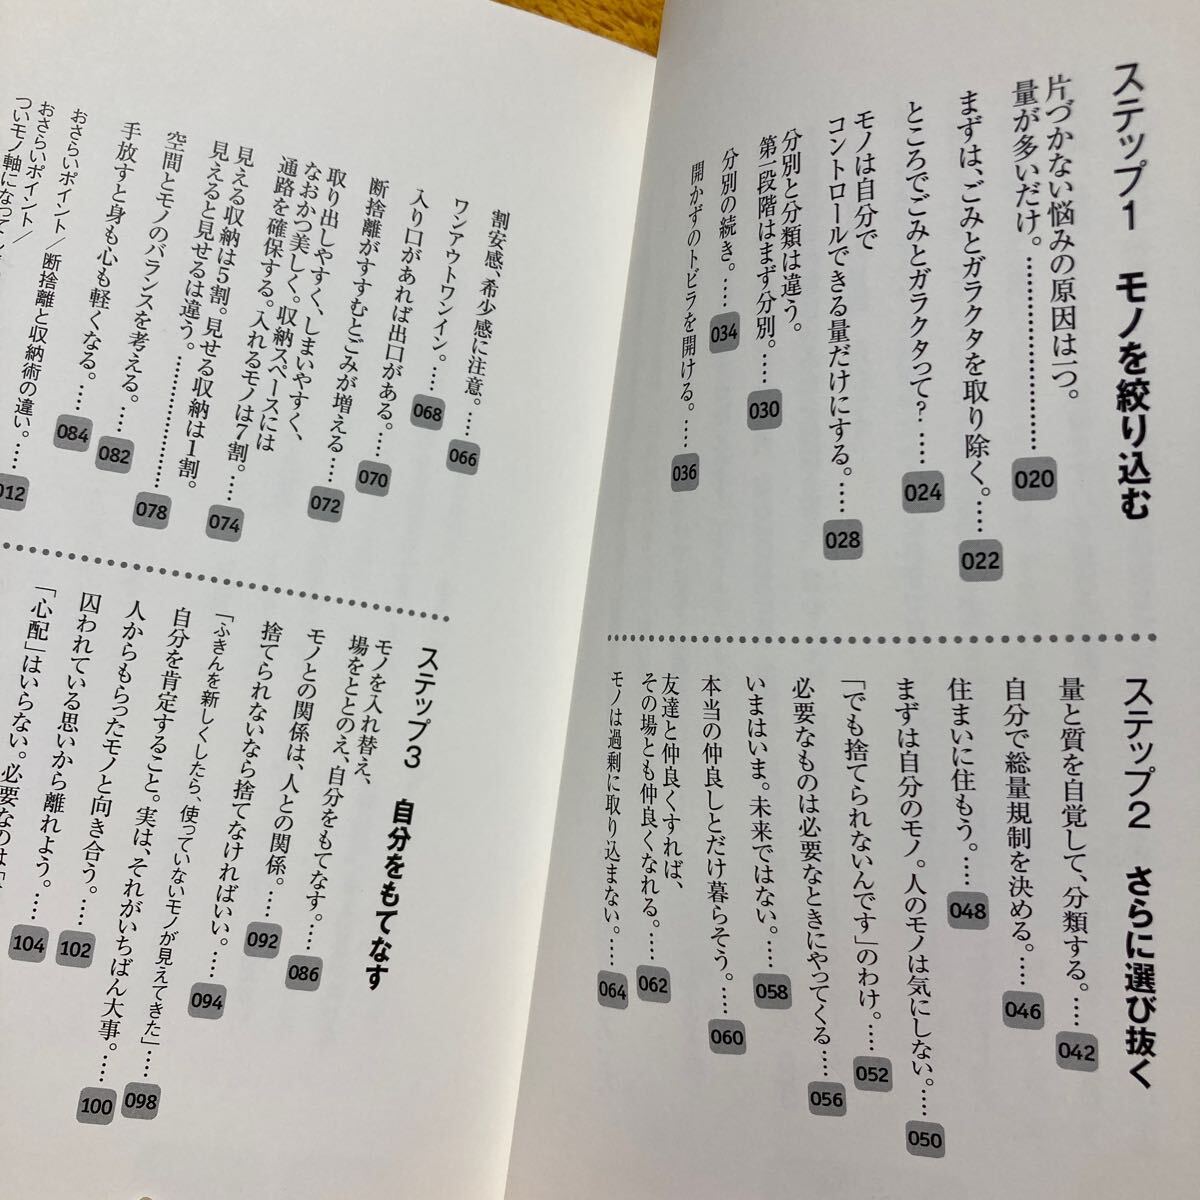 ステップ1 モノを絞り込む
片づかない悩みの原因は一つ。
量が多いだけ。……………………020
まずは、ごみとガラクタを取り除く。……022
ところでごみとガラクタって?……024
モノは自分で
コントロールできる量だけにする。……028
分別と分類は違う。
第一段階はまず分別。……030
分別の続き。……034
開かずのトビラを開ける。……036
ステップ2 さらに選び抜く
量と質を自覚して、分類する。……042
自分で総量規制を決める。……046
住まいに住もう。……048
まずは自分のモノ。人のモノは気にしない。……050
「でも捨てられないんです」のわけ。……052
必要なものは必要なときにやってくる……056
いまはいま。未来ではない。……058
本当の仲良しとだけ暮らそう。……060
友達と仲良くすれば、
その場とも仲良くなれる。……062
モノは過剰に取り込まない。……064
割安感、希少感に注意。……066
ワンアウトワンイン。……068
入り口があれば出口がある。……070
断捨離がすすむとごみが増える……072
取り出しやすく、しまいやすく、
なおかつ美しく。収納スペースには
通路を確保する。入れるモノは7割。……074
見える収納は5割。見せる収納は1割。
見えると見せるは違う。……………………078
空間とモノのバランスを考える。……082
手放すと身も心も軽くなる。……084
おさらいポイント/断捨離と収納術の違い。……012
おさらいポイント/
ついモノ軸になって
ステップ3 自分をもてなす
モノを入れ替え、
場をととのえ、自分をもてなす。……086
モノとの関係は、人との関係。……092
捨てられないなら捨てなければいい。……094
「ふきんを新しくしたら、使っていないモノが見えてきた」……098
自分を肯定すること。実は、それがいちばん大事。……100
人からもらったモノと向き合う。……102
囚われている思いから離れよう。……104
「心配」はいらない。必要なのは「